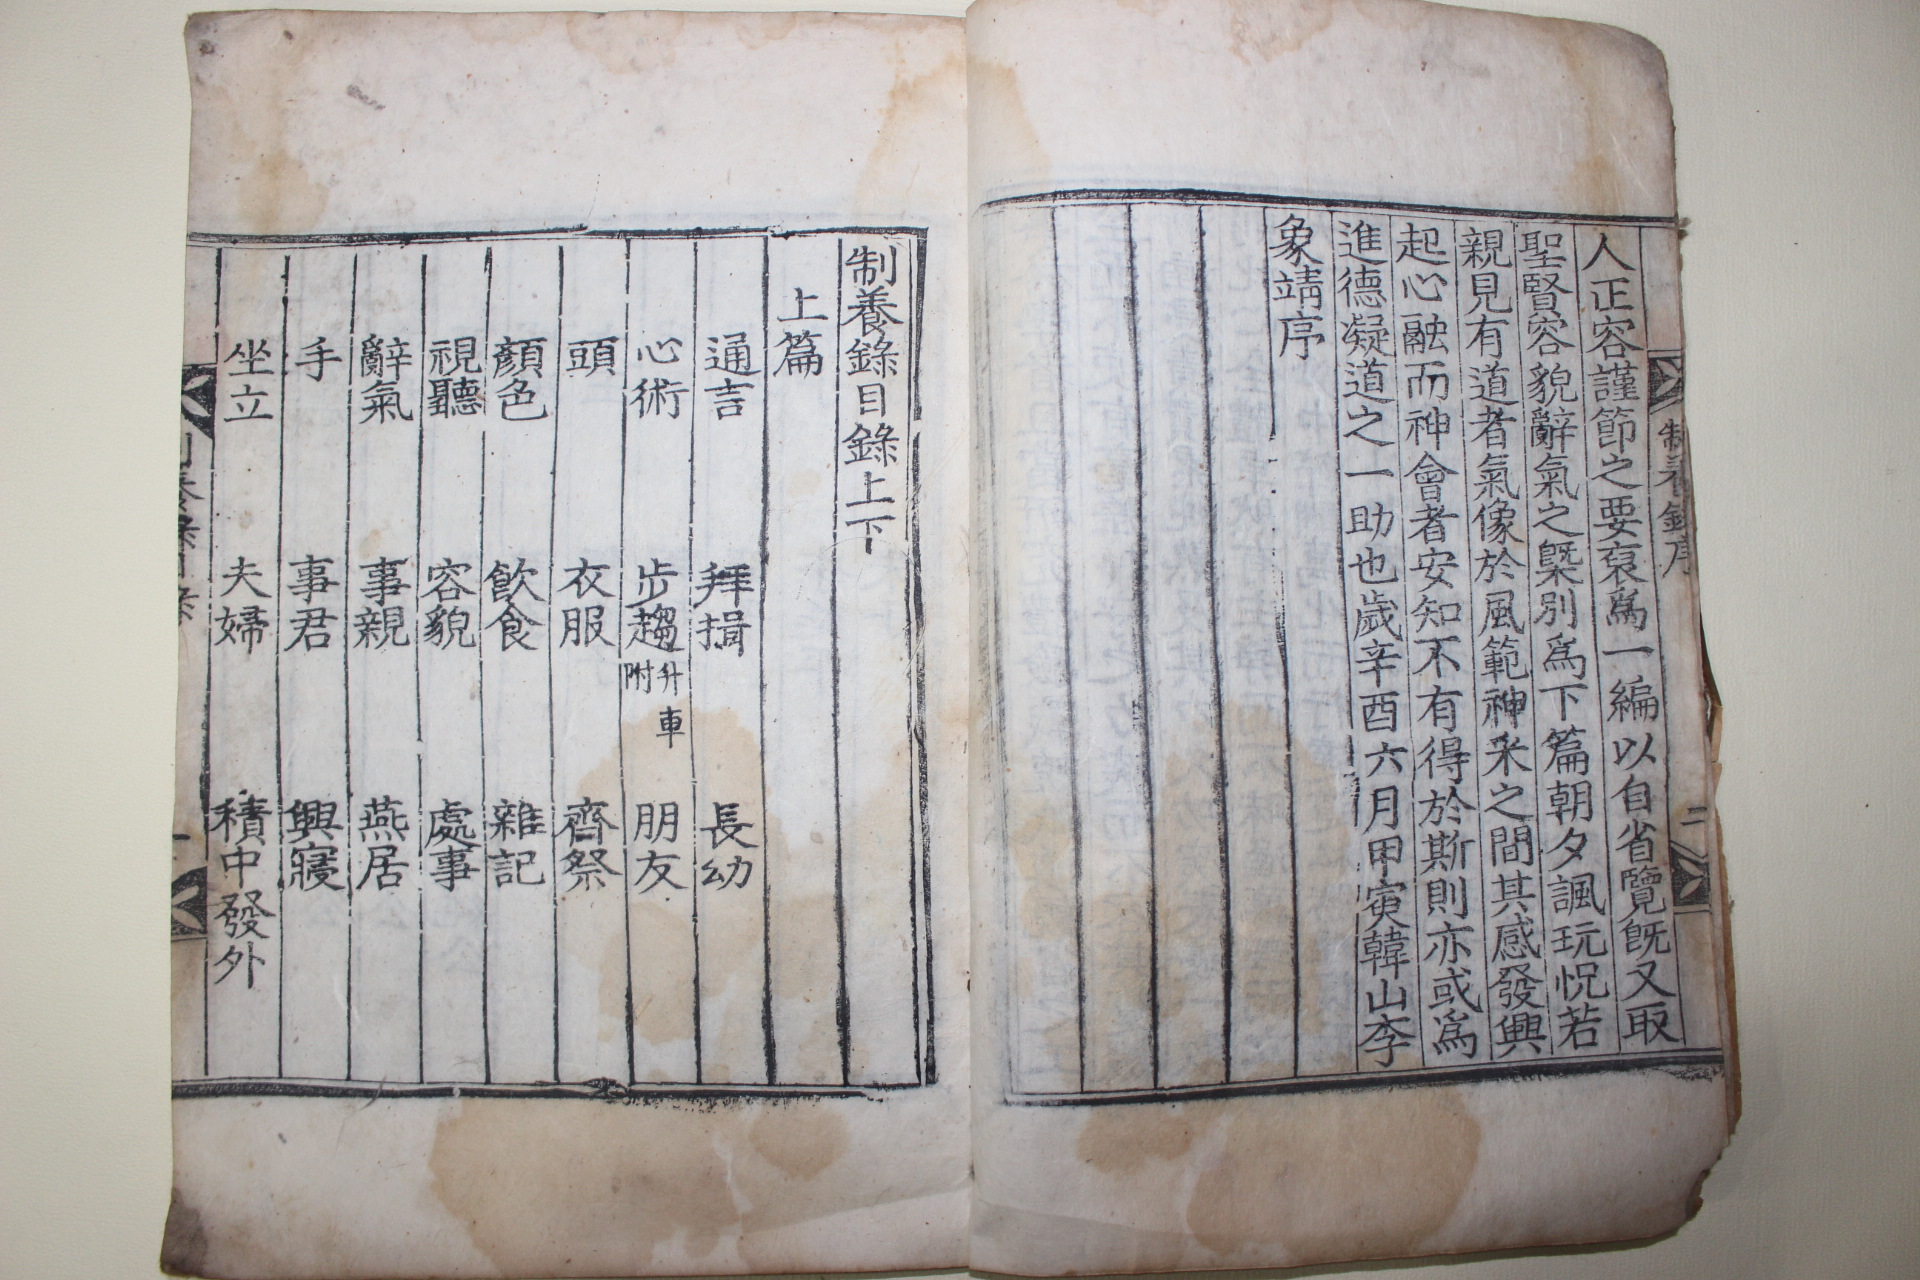 人正容謹節之要裒爲一編以自省覽旣又取
聖賢容貌辭氣之槩別爲下篇朝夕諷玩怳若
親見有道者氣像於風範神采之間其感發興
起心融而神會者安知不有得於斯則亦或爲
進德凝道之一助也歲辛酉六月甲寅韓山李
象靖序
制養錄序
二
制養錄目錄上下
上篇
通言 拜揖 長幼
心術 步趨升車附 朋友
頭 衣服 齊祭
顏色 飮食 雜記
視聽 容貌 處事
辭氣 事親 燕居
手 事君 興寢
坐立 夫婦 積中發外